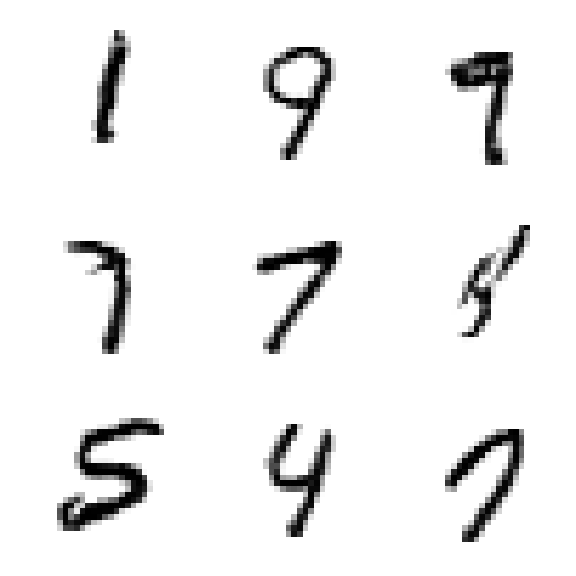 1 9 9
7 7 5
5 4 7